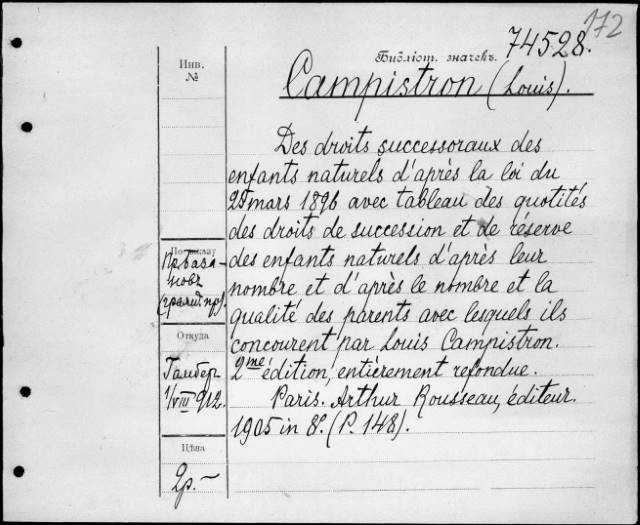 172
74528.
Библіот. значекъ.
Инв.
№
Campistron (Louis).
Des droits successoraux des
enfants naturels d'après la loi du
25 mars 1896 avec tableau des quotités
des droits de succession et de réserve
des enfants naturels d'après leur
nombre et d'après le nombre et la
qualité des parents avec lesquels ils
concourent par Louis Campistron.
2me édition, entièrement refondue.
Paris. Arthur Rousseau, éditeur.
1905 in 8º. (P. 148).
(гражд. пр).
Откуда
Гамбер
1/VIII 912.
Цѣна
2р. –